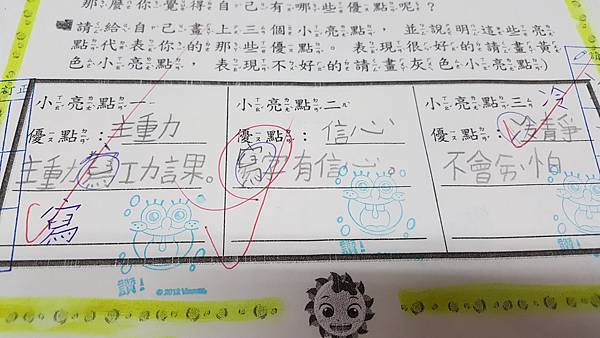 那麼你覺得自己有哪些優點呢？
請給自己畫上三個小亮點，並說明這些亮
點代表你的那些優點。表現很好的請畫黃
色小亮點，表現不好的請畫灰色小亮點)
訂正
小亮點一
優點：主動
主動寫功課。
寫
讚！
© 2012 Viacom
小亮點二
優點：信心
寫字有信心。
讚！
小亮點三
冷
優點：冷靜
不會害怕
讚！